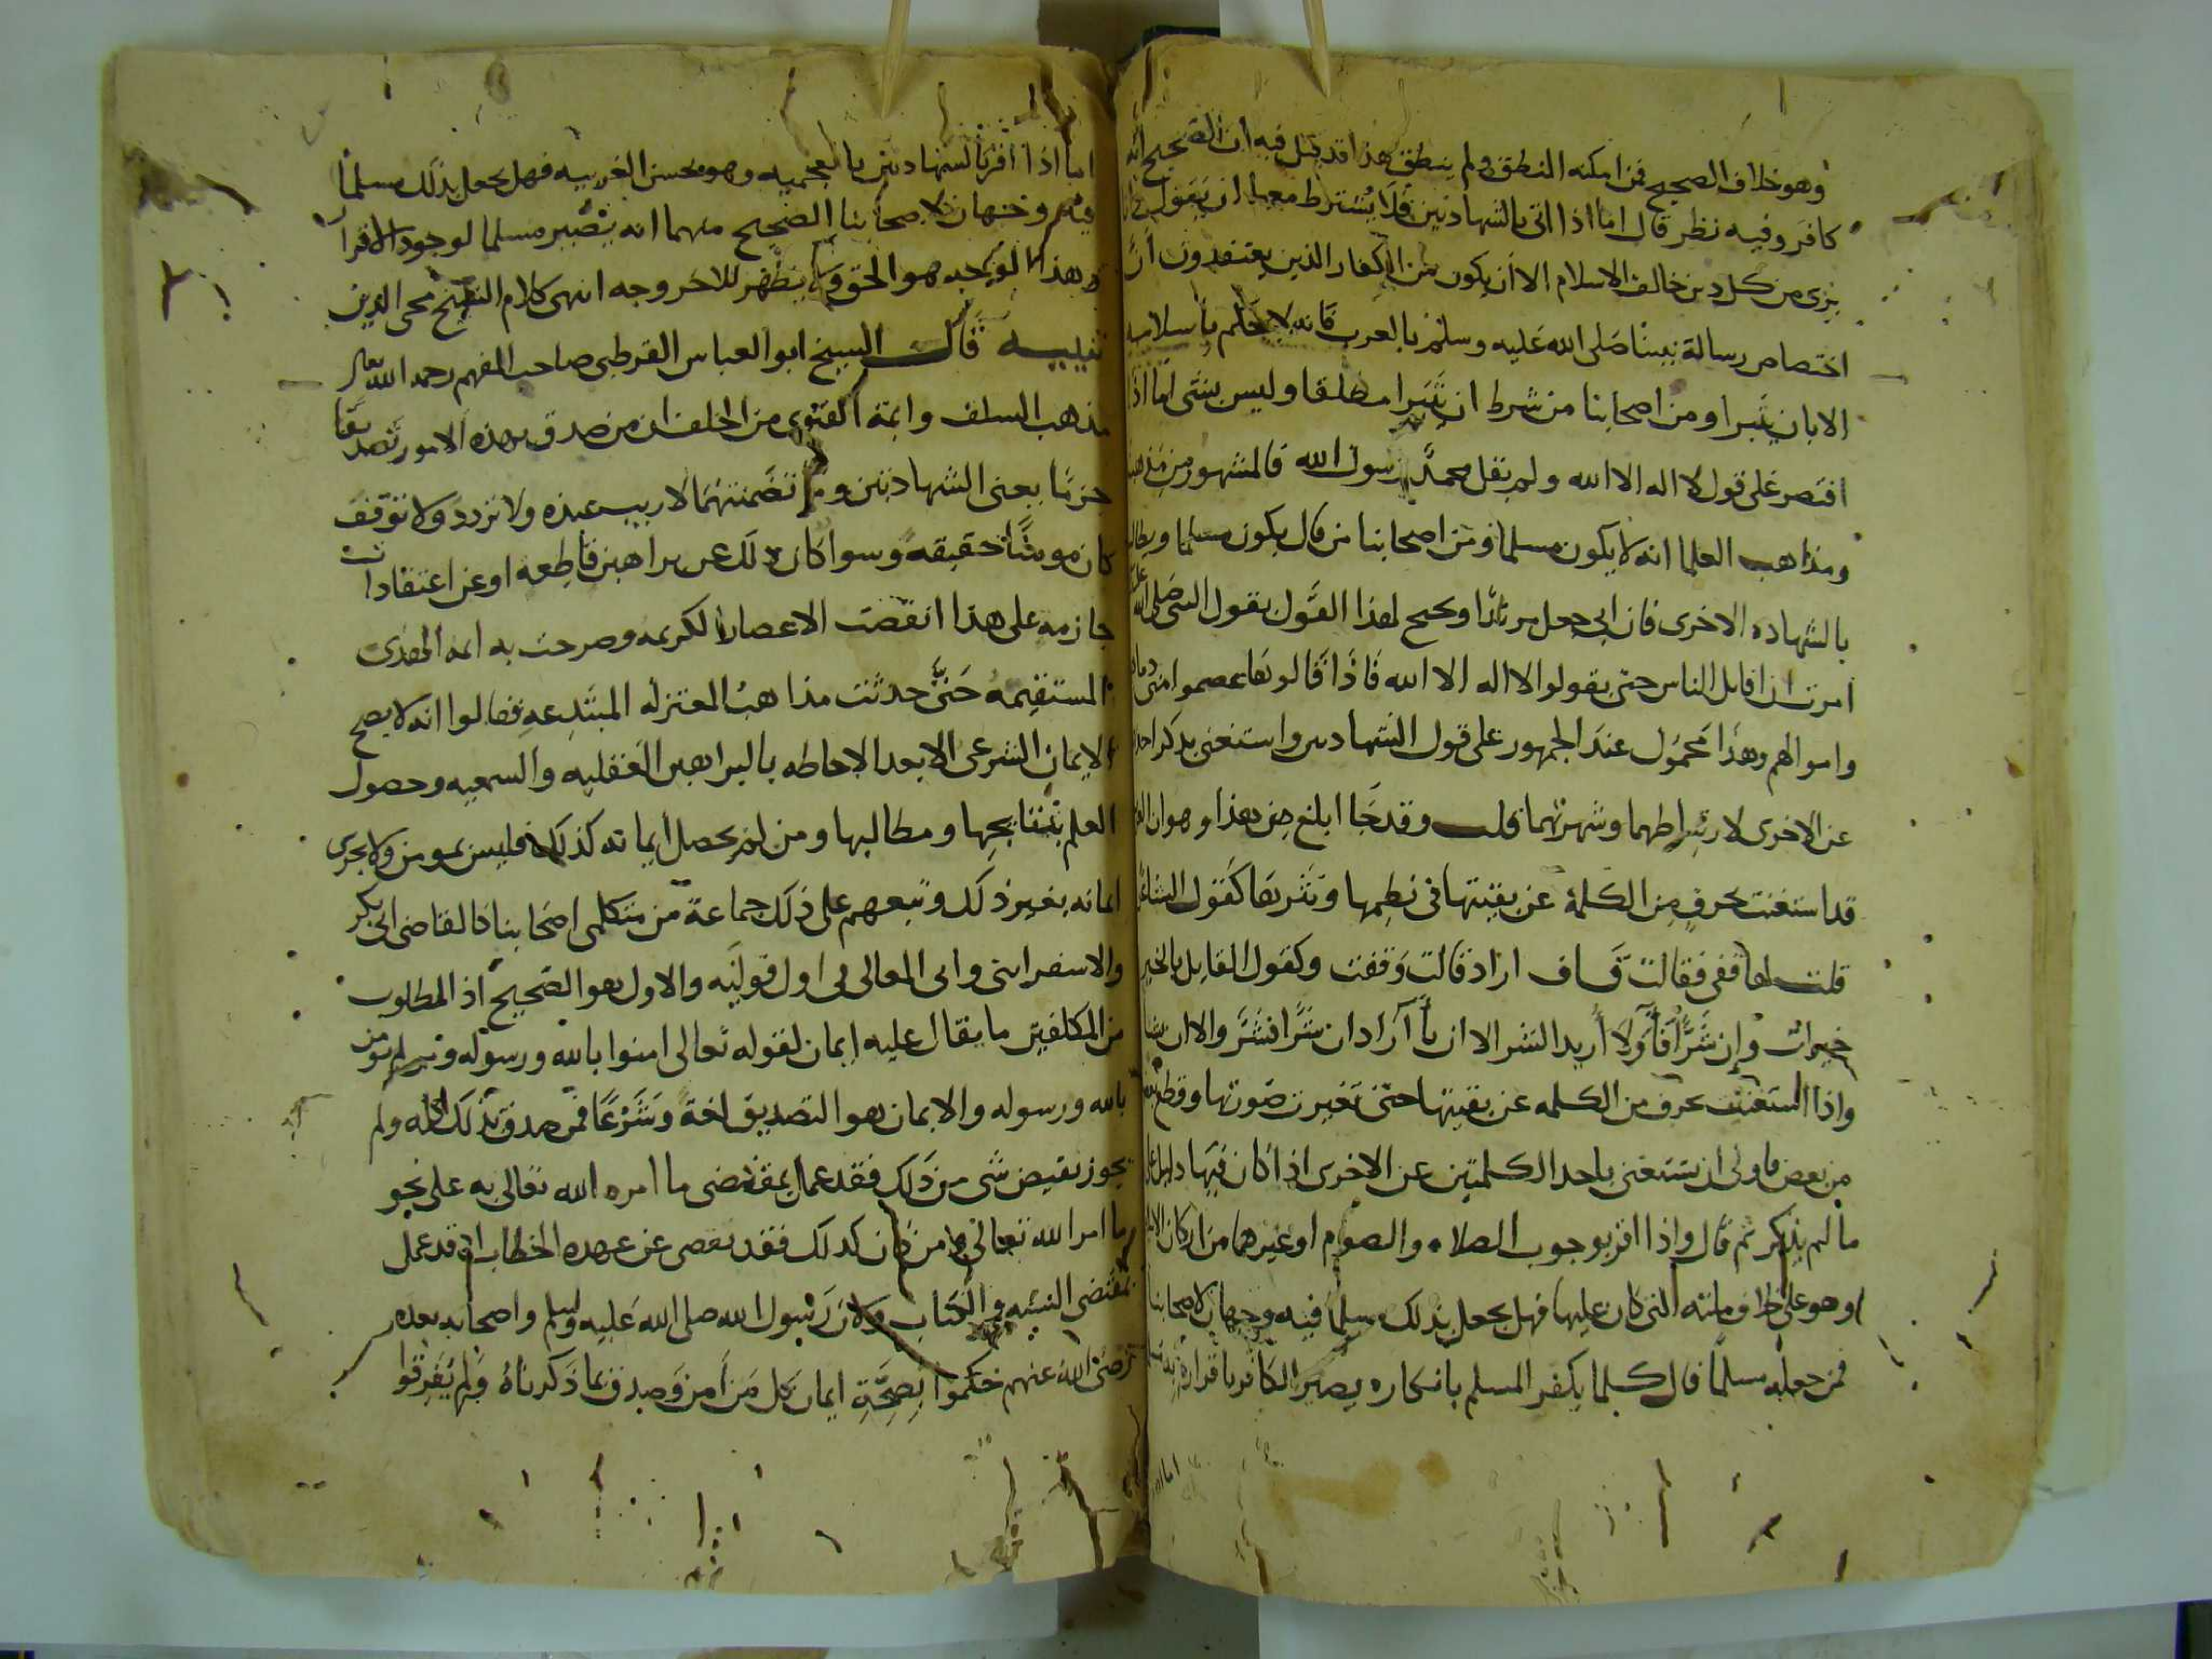 وهو خلاف الصحيح فمن امكنه النطق ولم ينطق هذا قد قيل فيه ان الصحيح انه
كافر وفيه نظر قال اما اذا اتى بالشهادتين فلا يشترط معها ان يقول
بري من كل دين خالف الاسلام الا ان يكون من الكفار الذين يعتقدون ان
اختصاص رسالة نبينا صلى الله عليه وسلم بالعرب فانه لا يحكم باسلامه
الا بان يتبرا ومن اصحابنا من شرط ان يتبرا مطلقا وليس بشي اما اذا
اقتصر على قول لا اله الا الله ولم يقل محمد رسول الله فالمشهور من مذهبنا
ومذاهب العلما انه لا يكون مسلما ومن اصحابنا من قال يكون مسلما ويطالب
بالشهاده الاخرى فان ابى جعل مرتدا ويحتج لهذا القول بقول النبي صلى الله عليه
امرت ان اقاتل الناس حتى يقولوا لا اله الا الله فاذا قالوها عصموا مني دماهم
واموالهم وهذا محمول عند الجمهور على قول الشهادتين واستغنى بذكر احدا
عن الاخرى لارتباطهما وشهرتهما قلت وقد جا ابلغ من هذا وهو ان
قد استغنت بحرف من الكلمة عن بقيتها في نظمها ونثرها كقول الشاعر
قلت لها قفي فقالت قاف اراد قالت وقفت وكقول القايل بالخير
خيرات وإن شرًّا فآ ولا أريد الشر الا ان تآ آراد ان شرًّا فشر والا ان تشا
واذا استغنت بحرف من الكلمه عن بقيتها حتى تغيرت صورتها وقطع
من بعض فاولى ان يستغنى باحد الكلمتين عن الاخرى اذا كان فيها دليل على
ما لم يذكر ثم قال واذا اقر بوجوب الصلاه والصوم او غيرهما من اركان الاسلام
وهو على خلاف ملته التي كان عليها فهل يجعل بذلك مسلما فيه وجهان لاصحابنا
فمن جعله مسلما قال كلما يكفر المسلم بانكاره يصير الكافر باقراره به مسلما
اما اذا اقر بالشهادتين بالعجميه وهو يحسن العربيه فهل يجعل بذلك مسلما
فيه وجهان لاصحابنا الصحيح منهما انه يصير مسلما لوجود الاقرار
وهذا الوجه هو الحق ولا يظهر للاخر وجه انتهى كلام الشيخ محي الدين
تنبيه قال الشيخ ابو العباس القرطبي صاحب المفهم رحمه الله تعالى
مذهب السلف وايمة الفتوى من الخلف ان من صدق بهذه الامور تصديقا
جزما بمعنى الشهادتين وما تضمنتهما لا ريب عنده ولا تردد ولا توقف
كان مومنًا حقيقه وسوا كان ذلك عن براهين قاطعه او عن اعتقادات
جازمه على هذا انقضت الاعصار الكريمه وصرحت به ايمه الهدى
المستقيمه حتى حدثت مذاهب المعتزله المبتدعه فقالوا انه لا يصح
الايمان الشرعي الا بعد الاحاطه بالبراهين العقليه والسمعيه وحصول
العلم بنتايجها ومطالبها ومن لم يحصل ايمانه كذلك فليس بمومن ولا يجزى
ايمانه بغير ذلك وتبعهم على ذلك جماعة من متكلمي اصحابنا كالقاضي ابي بكر
والاسفرايني وابي المعالي في اول قوليه والاول هو الصحيح اذ المطلوب
من المكلفين ما يقال عليه ايمان لقوله تعالى امنوا بالله ورسوله ومن لم يومن
بالله ورسوله والايمان هو التصديق لغة وشرعا فمن صدق بذلك كله ولم
يجوز نقيض شي من ذلك فقد عمل بمقتضى ما امره الله تعالى به على نحو
ما امر الله تعالى ومن كان كذلك فقد تقصى عن عهده الخطاب اذ قد عمل
بمقتضى السنه والكتاب ولان رسول الله صلى الله عليه وسلم واصحابه بعده
رضي الله عنهم حكموا بصحة ايمان كل من امن وصدق بما ذكرناه ولم يفرقوا